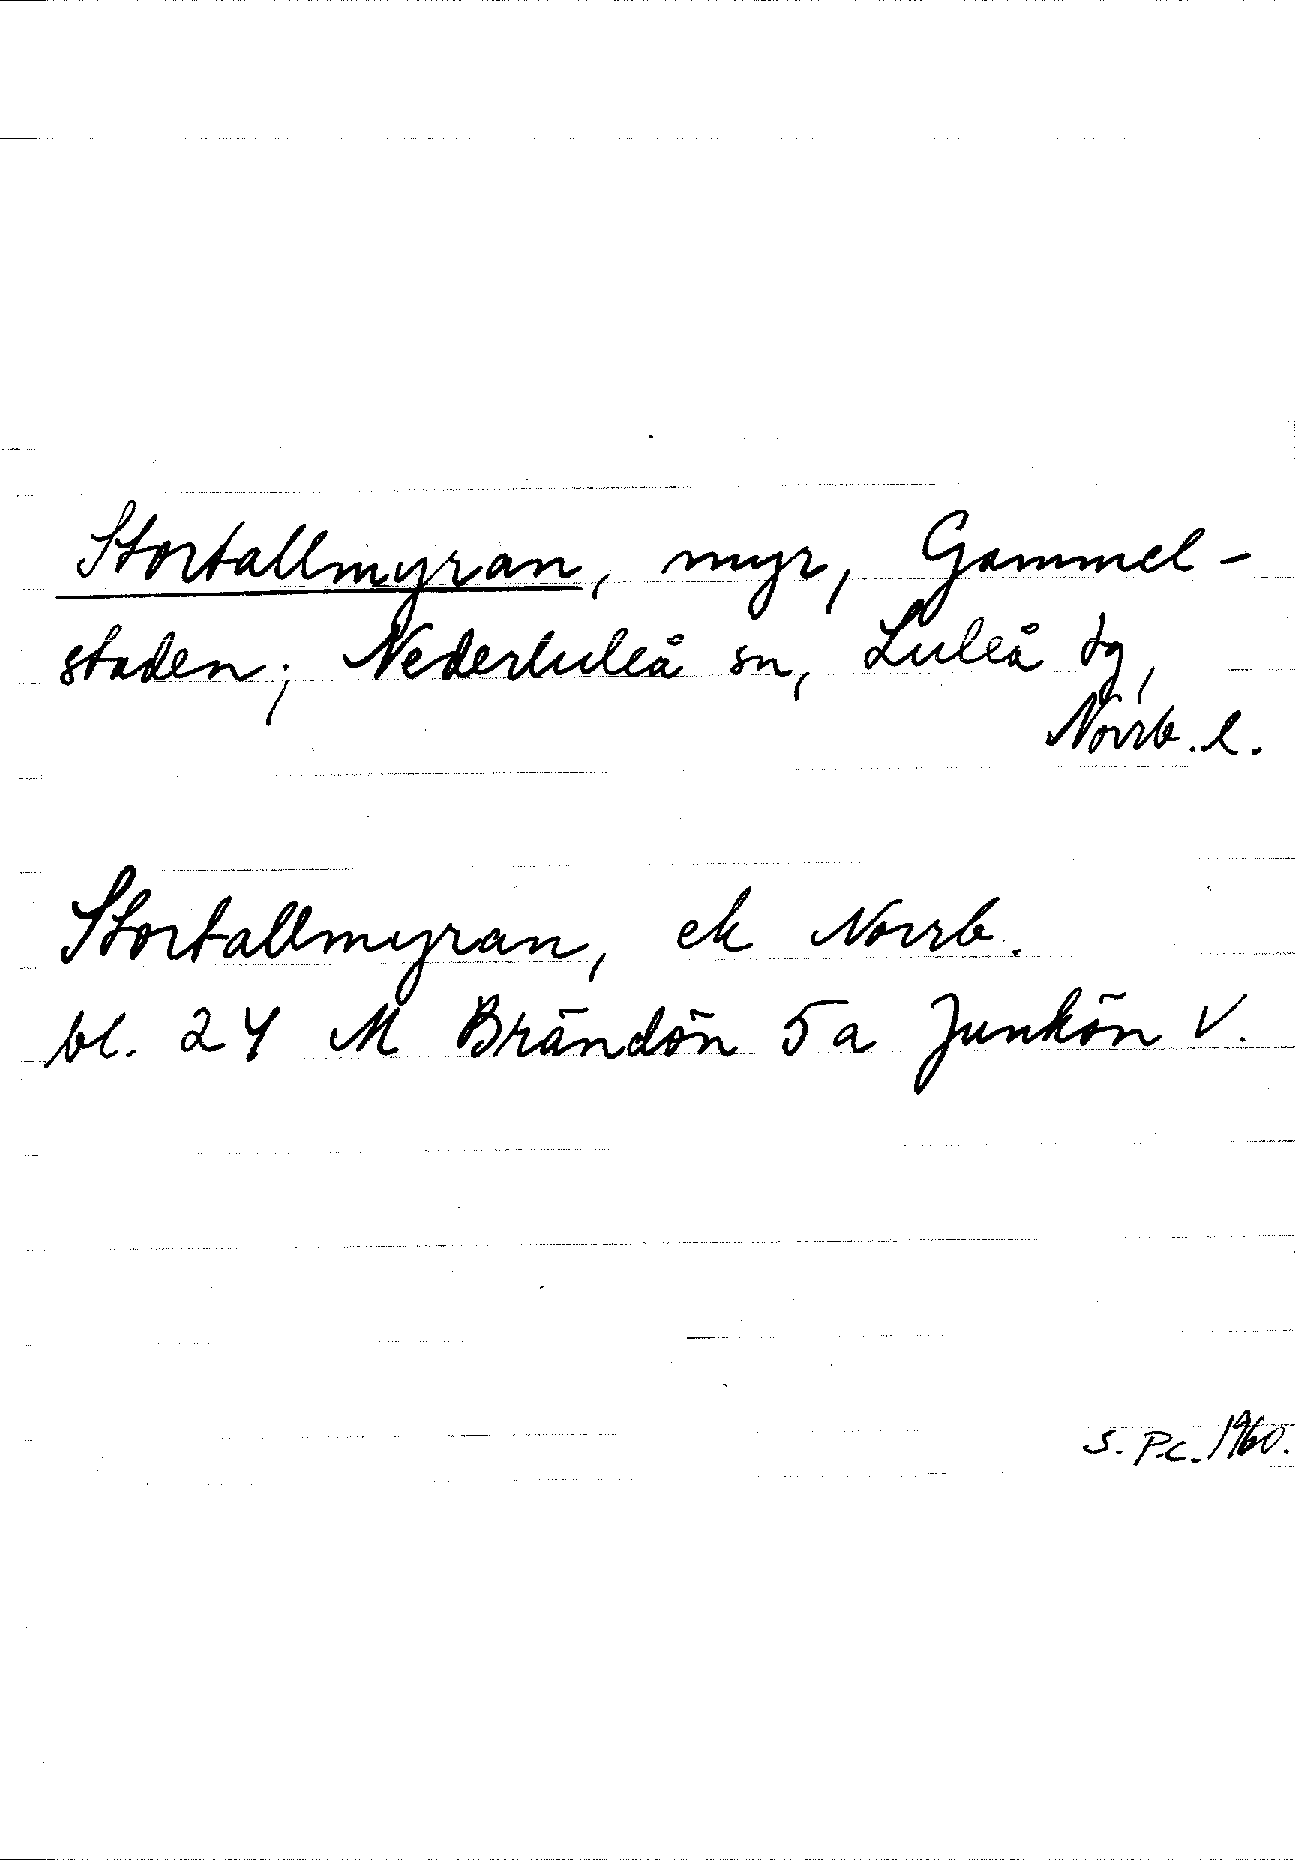 Stortallmyran, myr, Gammel-
staden; Nederluleå sn, Luleå tg,
Norrb. l.
Stortallmyran, ek Norrb.
bl. 24 M Brändön 5a Junkön V.
S. P.C. 1960.